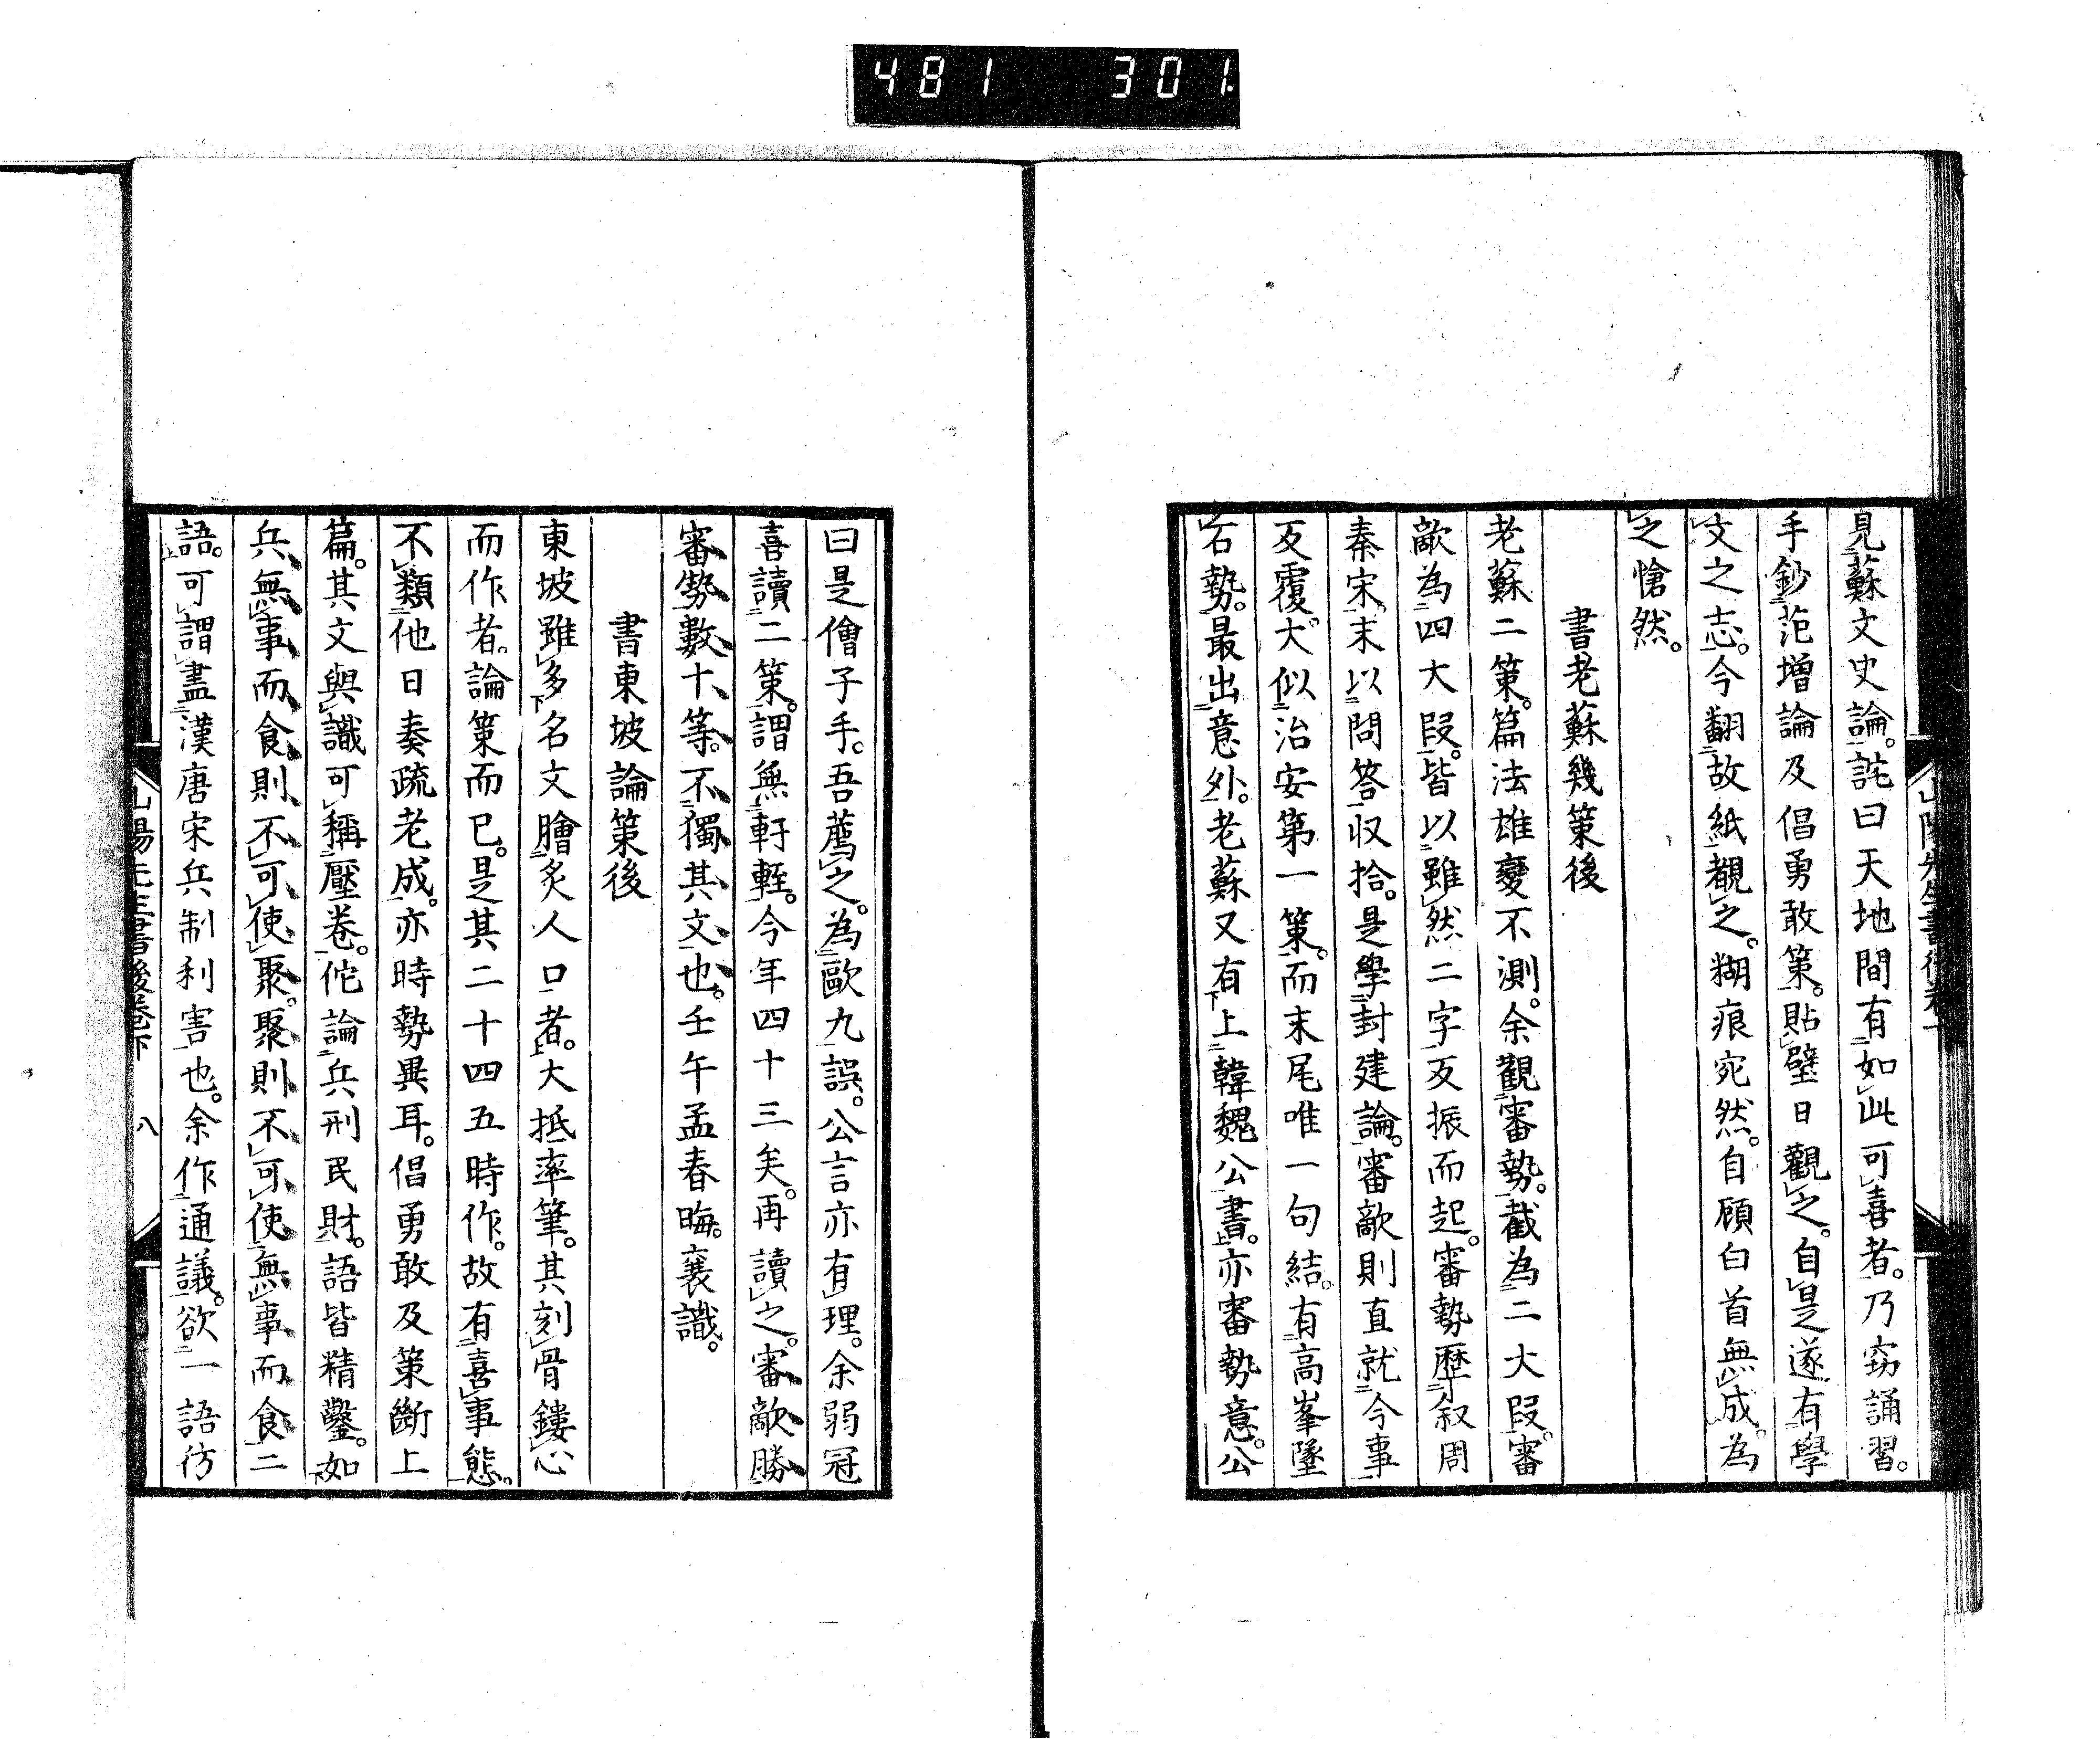 481 301.
山陽先生書後卷下
見蘇文史論。詫曰天地間有如此可喜者。乃窃誦習。
手鈔范增論及倡勇敢策。貼壁日觀之。自是遂有學
文之志。今翻故紙覩之。糊痕宛然。自顧白首無成。為
之愴然。
書老蘇幾策後
老蘇二策。篇法雄變不測。余觀審勢。截為二大段。審
敵為四大段。皆以雖然二字反振而起。審勢歷叙周
秦宋。末以問答收拾。是學封建論。審敵則直就今事
反覆。大似治安第一策。而末尾唯一句結。有高峯墜
石勢。最出意外。老蘇又有上韓魏公書。亦審勢意。公
曰是儈子手。吾薦之。為歐九誤。公言亦有理。余弱冠
喜讀二策。謂無軒輊。今年四十三矣。再讀之。審敵勝
審勢數十等。不獨其文也。壬午孟春晦。襄識。
書東坡論策後
東坡雖多名文膾炙人口者。大抵率筆。其刻骨鏤心
而作者。論策而已。是其二十四五時作。故有喜事態。
不類他日奏疏老成。亦時勢異耳。倡勇敢及策斷上
篇。其文與識可稱壓卷。佗論兵刑民財。語皆精鑿。如
兵無事而食。則不可使聚。聚則不可使無事而食二
語。可謂盡漢唐宋兵制利害也。余作通議。欲一語彷
山陽先生書後卷下 八